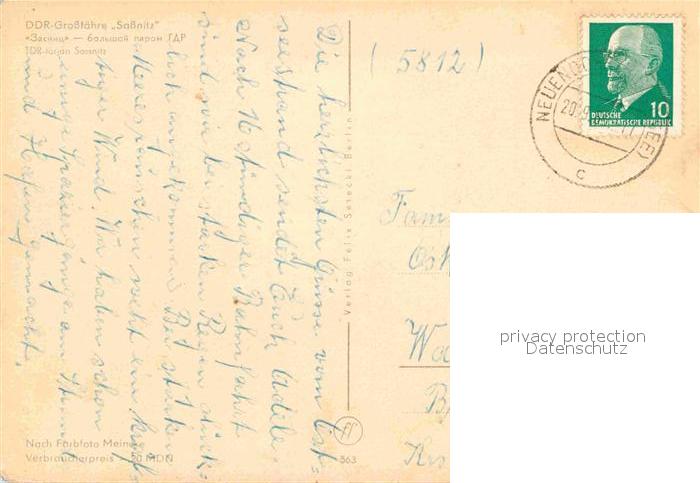 DDR-Großfähre „Saßnitz"
«Засниц» — большой паром ГДР
TDR-färjan Sassnitz
Die herzlichsten Grüsse vom Ost-
seestrand sendet Euch Adele.
Nach 16 stündiger Bahnfahrt
sind wir bei starken Regen glück-
lich angekommen. Bei starken
Meeresrauschen weht ein kräf-
tiger Wind. Wir haben schon
einige Spaziergänge am Strand
und Hafen gemacht.
Nach Farbfoto Meine
Verbraucherpreis -,20 MDN
Verlag Felix Setecki Berlin
363
(5812)
NEUEN
20.9
C
10
DEUTSCHE
DEMOKRATISCHE REPUBLIK
Fam
B
privacy protection
Datenschutz